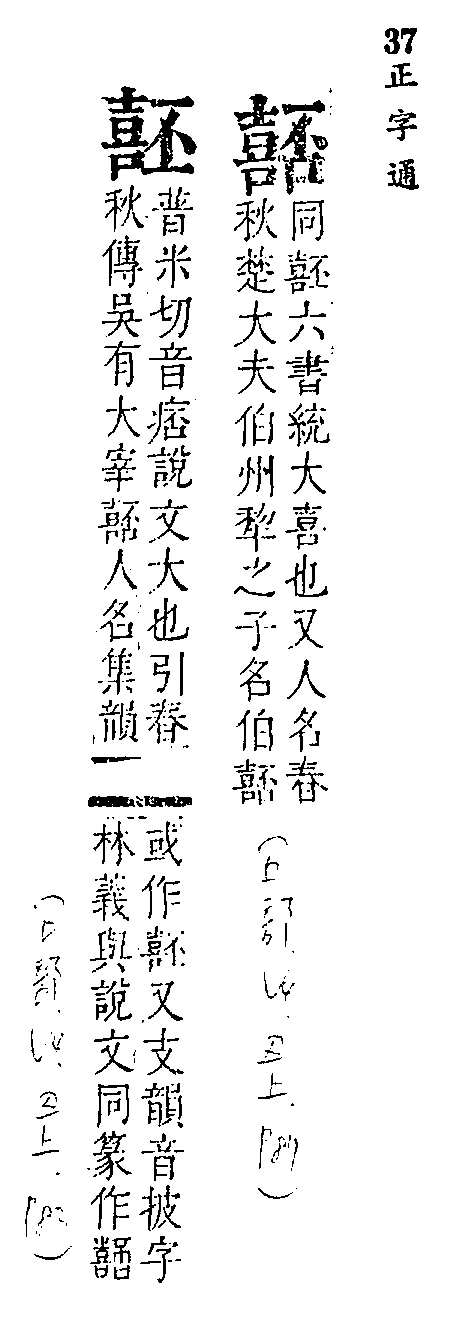 37
正字通
嚭
同噽六書統大喜也又人名春
秋楚大夫伯州犂之子名伯嚭
噽
普米切音痞說文大也引春
秋傳吳有大宰嚭人名集韻
或作噽又支韻音披字
林義與說文同篆作嚭